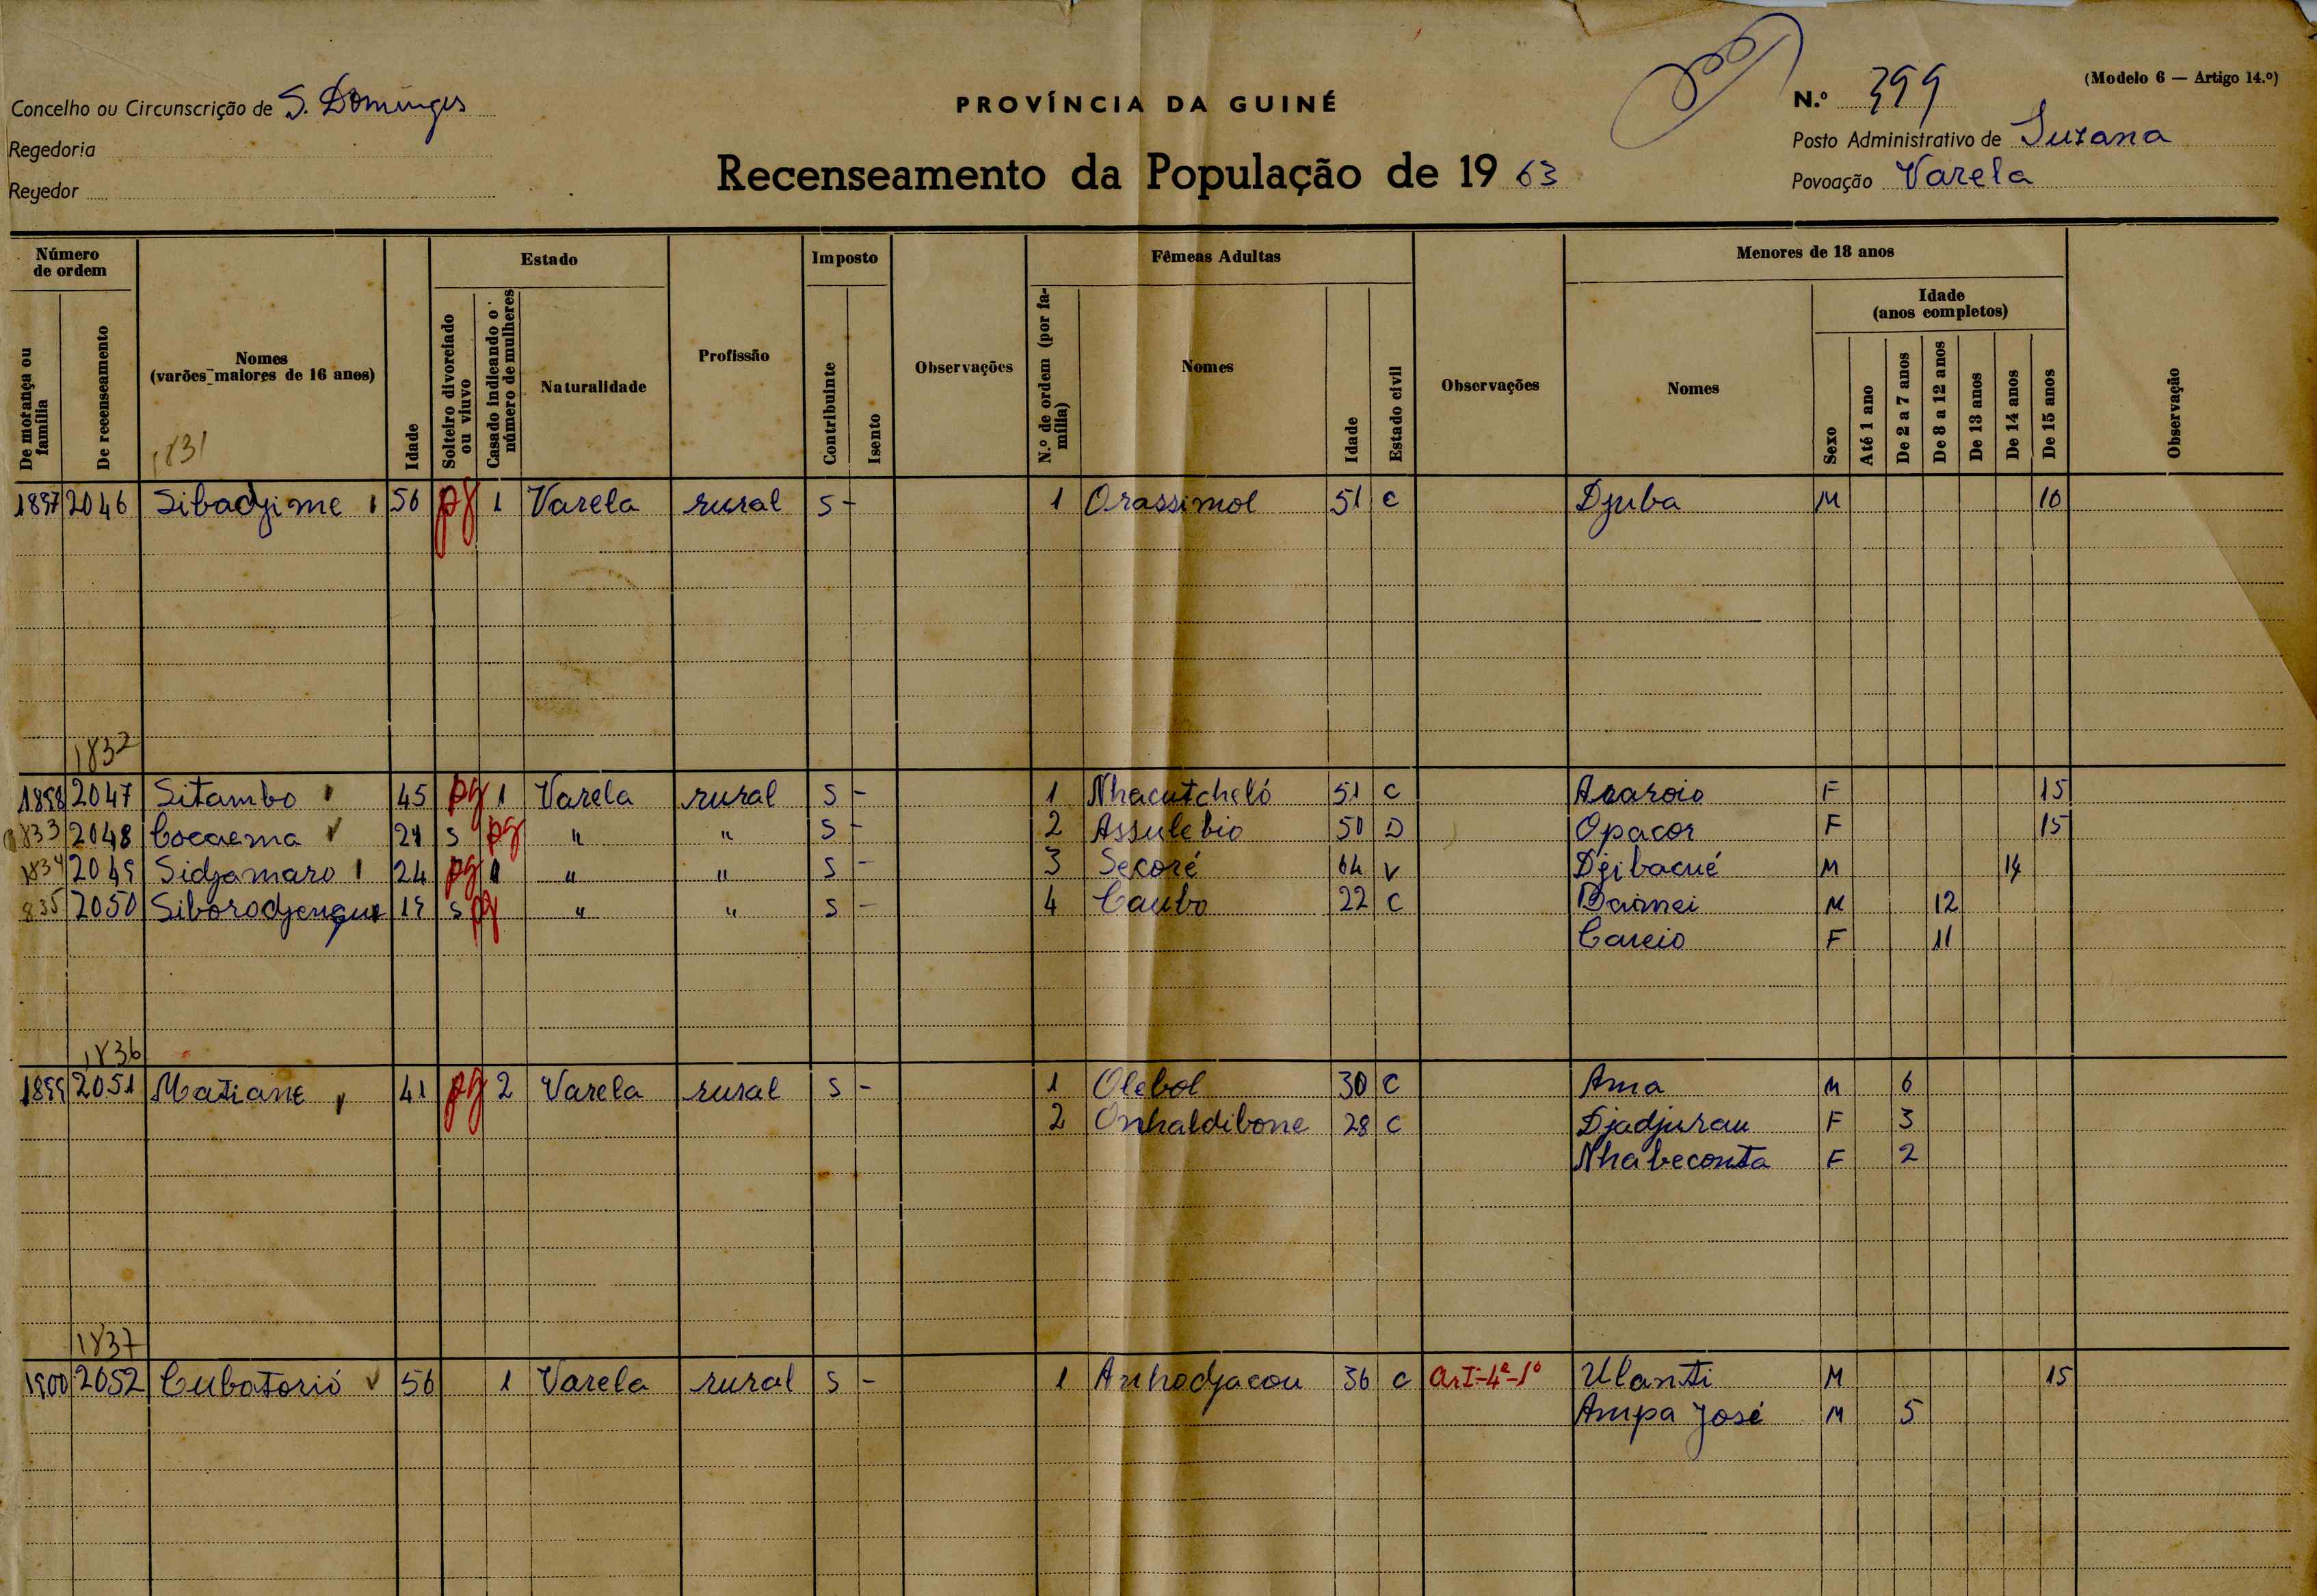 (Modelo 6 — Artigo 14.º)
Concelho ou Circunscrição de S. Domingos
PROVÍNCIA DA GUINÉ
N.º 399
Regedoria
Posto Administrativo de Suzana
Regedor
Recenseamento da População de 19 63
Povoação Varela
Número de ordem
De morança ou família
De recenseamento
Nomes
(varões maiores de 16 anos)
1831
Idade
Estado
Solteiro divorciado ou viuvo
Casado indicando o número de mulheres
Naturalidade
Profissão
Imposto
Contribuinte
Isento
Observações
Fêmeas Adultas
N.º de ordem (por família)
Nomes
Idade
Estado civil
Observações
Menores de 18 anos
Nomes
Idade
(anos completos)
Sexo
Até 1 ano
De 2 a 7 anos
De 8 a 12 anos
De 13 anos
De 14 anos
De 15 anos
Observação
1897 2046 Sibadjime 56 pg 1 Varela rural S - 1 Orassimol 51 C Djuba M 10
1832
1898 2047 Sitambo 45 pg 1 Varela rural S - 1 Nhacutcheló 51 C F 15
1833 2048 Cocaema 21 S pg " " S - 2 Assulebio 50 D Opacor F 15
1834 2049 Sidjamaro 24 pg 1 " " S - 3 Secoré 64 V Djibacué M 14
835 2050 Siborodjengue 19 S pg " " S - 4 Caubo 22 C Bamei M 12
Careio F 11
1836
1899 2051 Matiane 41 pg 2 Varela rural S - 1 Olebol 30 C Ama M 6
2 Onhaldibone 28 C Djadjurau F 3
Nhabeconta F 2
1837
1900 2052 Cubatorió 56 1 Varela rural S - 1 Anhodjacou 36 C ArI-4ª-1º Ulanti M 15
Ampa José M 5